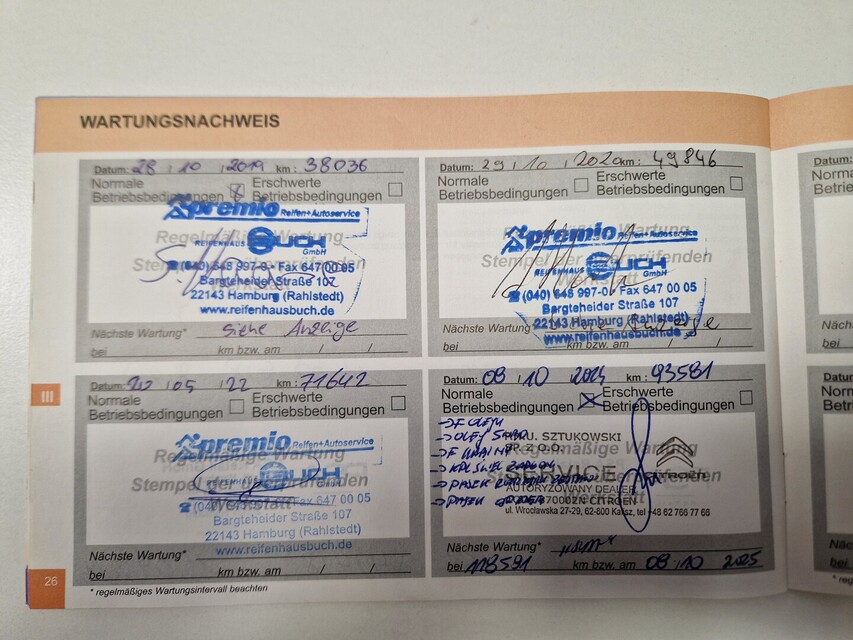 WARTUNGSNACHWEIS
Datum: 28 / 10 / 2019 km: 38036
Normale Betriebsbedingungen
Erschwerte Betriebsbedingungen
Regelmäßige Wartung
Stempel der überprüfenden
premio Reifen+Autoservice
REIFENHAUS BUCH GmbH
(040) 648 997-0 • Fax 647 00 05
Bargteheider Straße 107
22143 Hamburg (Rahlstedt)
www.reifenhausbuch.de
Nächste Wartung* siehe Anzeige
bei km bzw. am / /
Datum: 29 / 10 / 2020 km: 49846
Normale Betriebsbedingungen
Erschwerte Betriebsbedingungen
Regelmäßige Wartung
Stempel der überprüfenden
premio Reifen+Autoservice
REIFENHAUS BUCH GmbH
(040) 648 997-0 Fax 647 00 05
Bargteheider Straße 107
22143 Hamburg (Rahlstedt)
www.reifenhausbuch.de
Nächste Wartung*
bei km bzw. am / /
III
Datum: 20 / 05 / 22 km: 71642
Normale Betriebsbedingungen
Erschwerte Betriebsbedingungen
Regelmäßige Wartung
Stempel der überprüfenden
Werkstatt
premio Reifen+Autoservice
REIFENHAUS BUCH GmbH
Fax 647 00 05
Bargteheider Straße 107
22143 Hamburg (Rahlstedt)
www.reifenhausbuch.de
Nächste Wartung*
bei km bzw. am / /
Datum: 08 / 10 2024 km: 93581
Normale Betriebsbedingungen
Erschwerte Betriebsbedingungen
Regelmäßige Wartung
SZTUKOWSKI
SERVICE
AUTORYZOWANY DEALER
CITROËN
ul. Wrocławska 27-29, 62-800 Kalisz, tel +48 62 766 77 66
Nächste Wartung*
bei 118581 km bzw. am 08 / 10 2025
26
* regelmäßiges Wartungsintervall beachten